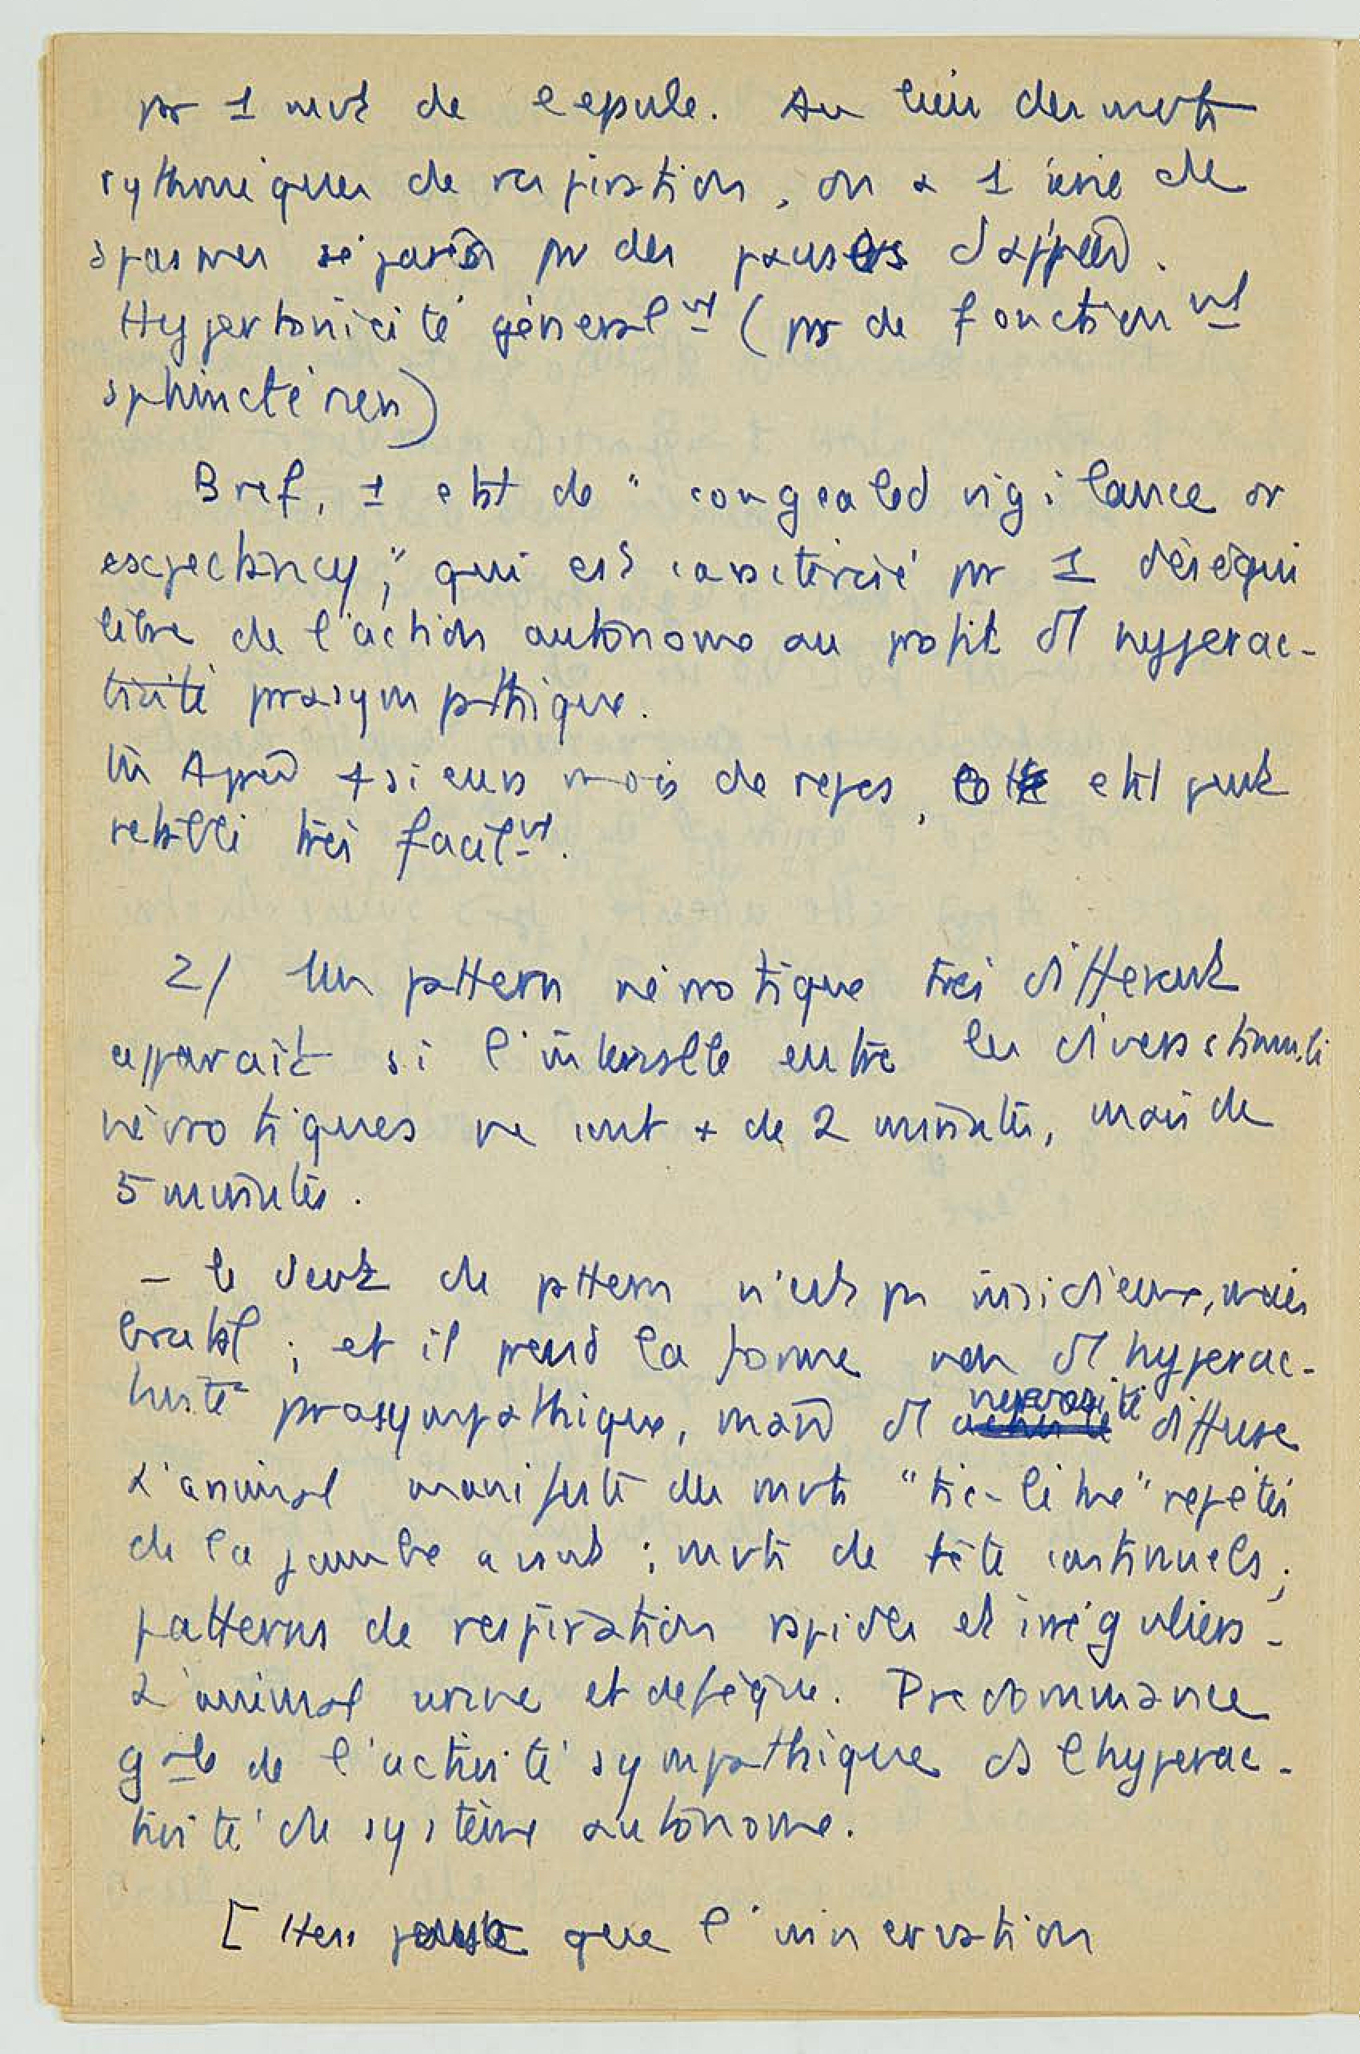 pr 1 mvt de l'épule. Au lieu des mvts
rythmiques de respiration, on a 1 série de
spasmes séparés pr des pauses d'apnée.
Hypertonicité généralt (ps de fonctiont
sphinctérien)
Bref, 1 état de "congealed vigilance or
expectancy", qui est caractérisé pr 1 déséqui
libre de l'action autonome au profit d'1 hyperac-
tivité parasympathique.
Après +sieurs mois de repos, état peut
rétabli très facilt.
2/ Un pattern névrotique très différent
apparait si l'intervalle entre les divers stimuli
névrotiques ne sont + de 2 minutes, mais de
5 minutes.
- le devt du pattern n'est ps insidieux, mais
brutal ; et il prend la forme non d'1 hyperac-
tivité parasympathique, mais d'1 nervosité diffuse
L'animal manifeste des mvts "tic-like" répétés
de la jambe avant ; mvts de tête continuels ;
patterns de respiration rapides et irréguliers -
L'animal urine et defèque. Predominance
gale de l'activité sympathique ds l'hyperac-
tivité du système autonome.
[ Hess pense que l'innervation